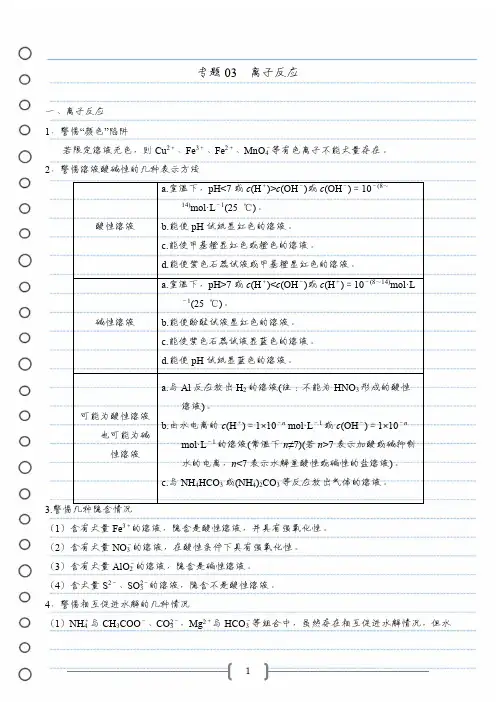 专题03 离子反应
一、离子反应
1．警惕“颜色”陷阱
若限定溶液无色，则 Cu²⁺、Fe³⁺、Fe²⁺、MnO₄⁻等有色离子不能大量存在。
2．警惕溶液酸碱性的几种表示方法
酸性溶液
a.室温下，pH<7 或 c(H⁺)>c(OH⁻)或 c(OH⁻)＝10⁻⁽⁸～
¹⁴⁾mol·L⁻¹(25 ℃)。
b.能使 pH 试纸显红色的溶液。
c.能使甲基橙显红色或橙色的溶液。
d.能使紫色石蕊试液或甲基橙显红色的溶液。
碱性溶液
a.室温下，pH>7 或 c(H⁺)<c(OH⁻)或 c(H⁺)＝10⁻⁽⁸～¹⁴⁾mol·L
⁻¹(25 ℃)。
b.能使酚酞试液显红色的溶液。
c.能使紫色石蕊试液显蓝色的溶液。
d.能使 pH 试纸显蓝色的溶液。
可能为酸性溶液
也可能为碱
性溶液
a.与 Al 反应放出 H₂ 的溶液(注：不能为 HNO₃ 形成的酸性
溶液)。
b.由水电离的 c(H⁺)＝1×10⁻ⁿ mol·L⁻¹ 或 c(OH⁻)＝1×10⁻ⁿ
mol·L⁻¹ 的溶液(常温下 n≠7)(若 n>7 表示加酸或碱抑制
水的电离，n<7 表示水解呈酸性或碱性的盐溶液)。
c.与 NH₄HCO₃ 或(NH₄)₂CO₃ 等反应放出气体的溶液。
3.警惕几种隐含情况
（1）含有大量 Fe³⁺的溶液，隐含是酸性溶液，并具有强氧化性。
（2）含有大量 NO₃⁻的溶液，在酸性条件下具有强氧化性。
（3）含有大量 AlO₂⁻的溶液，隐含是碱性溶液。
（4）含大量 S²⁻、SO₃²⁻的溶液，隐含不是酸性溶液。
4．警惕相互促进水解的几种情况
（1）NH₄⁺与 CH₃COO⁻、CO₃²⁻，Mg²⁺与 HCO₃⁻等组合中，虽然存在相互促进水解情况，但水
1